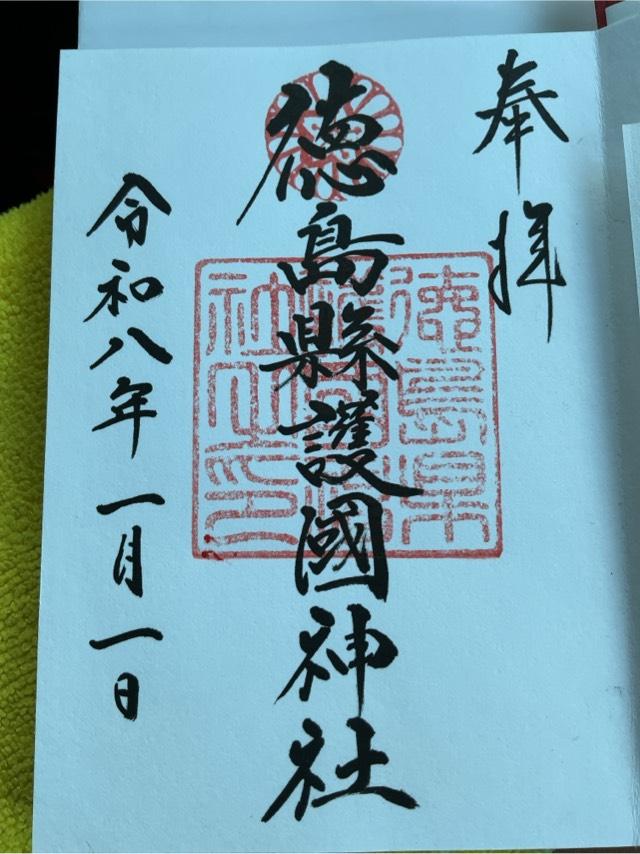 奉拝
徳島縣護國神社
徳島県護国神社之印
令和八年一月一日